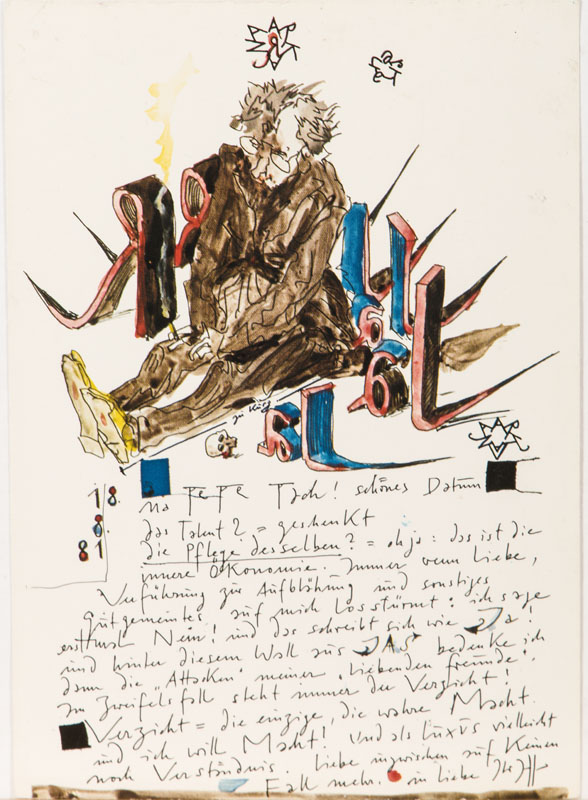 zu kurz
18.
8.
81
na PEPE Tach! schönes Datum
das Talent? = geschenkt
die Pflege desselben? = oh ja: das ist die
innere Ökonomie. Immer wenn Liebe,
Verführung zur Aufblähung und sonstiges
gutgemeintes auf mich losstürmt: ich sage
Nein! und das schreibt sich wie Ja!
und hinter diesem Wall aus "JAS" bedenke ich
dann die "Attacken" meiner "liebenden freunde".
im Zweifelsfall steht immer der Verzicht!
Verzicht = die einzige, die wahre Macht.
und ich will Macht! und als Luxus vielleicht
noch Verständnis. Liebe inzwischen auf Keinen
Fall mehr. in Liebe